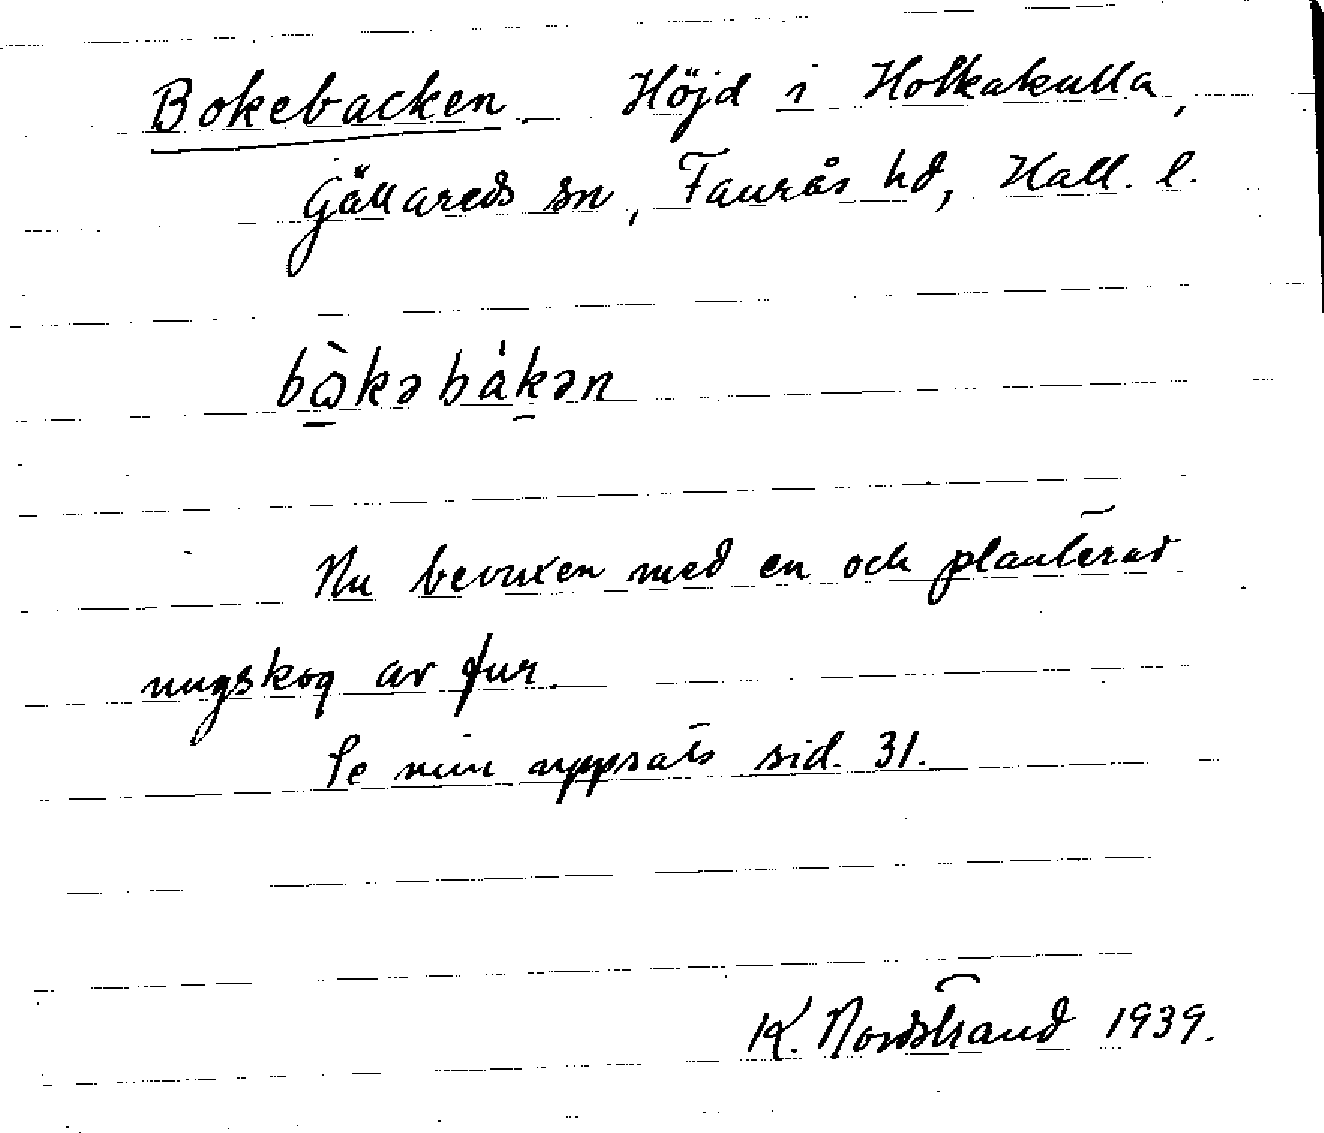 Bokebacken. Höjd i Holkakulla,
Gällareds sn, Faurås hd, Hall. l.
bò̱kəbàkən
Nu bevuxen med en och planterad
ungskog av fur.
Se min uppsats sid. 31.
K. Nordstrand 1939.